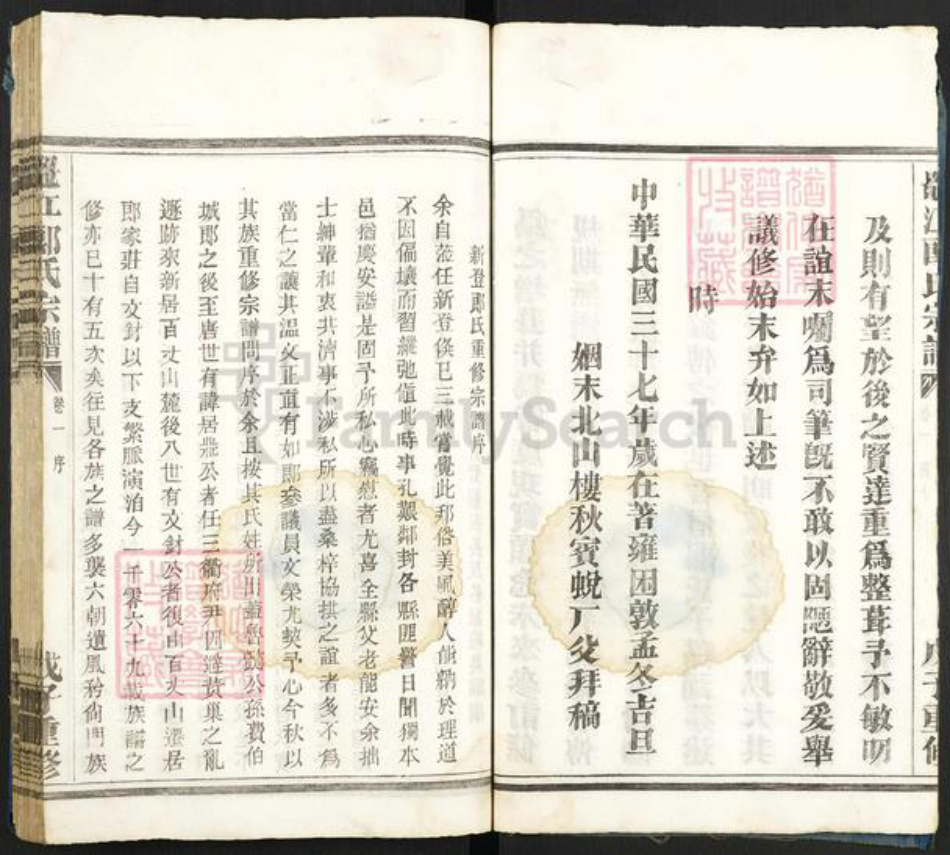 及則有望於後之賢達重爲整葺予不敏叨
在誼末囑爲司筆旣不敢以固陋辭敬爰舉
議修始末弁如上述
時
中華民國三十七年歲在著雍困敦孟冬吉旦
姻末北山樓秋賓蛻厂父拜稿
新登郎氏重修宗譜序
余自蒞任新登倏已三載嘗覺此邦俗美風醇人能納於理道
不因偏壤而習縱弛値此時事孔艱鄰封各縣匪警日聞獨本
邑猶慶安謐是固予所私心竊慰者尤喜全縣父老能安余拙
士紳輩和衷共濟事不涉私所以盡桑梓協拱之誼者多不爲
當仁之讓其溫文正直有如郎參議員文榮尤契予心今秋以
其族重修宗譜問序於余且按其氏姓所出蓋魯懿公孫費伯
城郎之後至唐世有諱居鼎公者任三衢府尹因達黃巢之亂
遯跡來新居百丈山麓後八世有文針公者復由百丈山遷居
郎家莊自文針以下支繁脈演洎今一千零六十九載族譜之
修亦已十有五次矣往見各族之譜多襲六朝遺風矜尙門族
江郎氏宗譜
卷一
序
戊子重修
FamilySearch